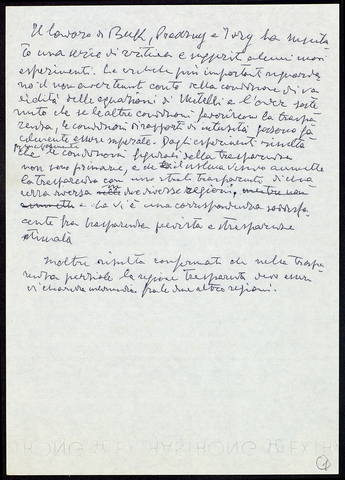 Il lavoro di Beck, Prazdny e Ivry ha suscita
to una serie di critiche e suggerito alcuni nuovi
esperimenti. Le critiche più importanti riguarda
no il non aver tenuto conto della condizione di va
lidità delle equazioni di Metelli e l'aver soste
nuto che se le altre condizioni favoriscono la traspa
renza, le condizioni di rapporti di intensità possono fa
cilmente essere superate. Dagli esperimenti risulta
che le condizioni figurali della trasparenza
non sono primarie, e che il sistema visivo
la trasparenza con uno strato trasparente di chia
rezza diversa nelle due diverse regioni,
e che vi è una corrispondenza soddisfa
cente fra trasparenza prevista e trasparenza
stimata
Inoltre risulta confermato che nella traspa
renza parziale la regione trasparente deve essere
di chiarezza intermedia fra le due altre regioni.
1